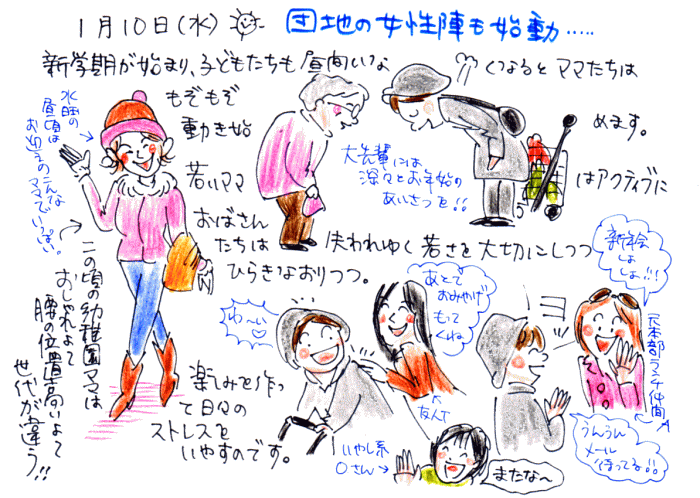 1月10日(水)
団地の女性陣も始動.....
新学期が始まり、子どもたちも昼間いな
くなるとママたちは
もぞもぞ
動き始
めます。
若いママ
はアクティブに
おばさん
たちは
失われゆく若さを大切にしつつ
ひらきなおりつつ。
楽しみを作っ
て日々の
ストレスを
いやすのです。
水曜の
昼頃は
お迎えのこんな
ママでいっぱい。
この頃の幼稚園ママは
おしゃれよて
腰の位置高いよて
世代が違う!!
大先輩には
深々とお年始の
あいさつを!!
わ〜い
あとで
おみやげ
もって
くね
新年会
しよ
しよ!!!
本部ランチ仲間A
うんうん
メール
まってる!!
いやし系
Oさん
またな〜